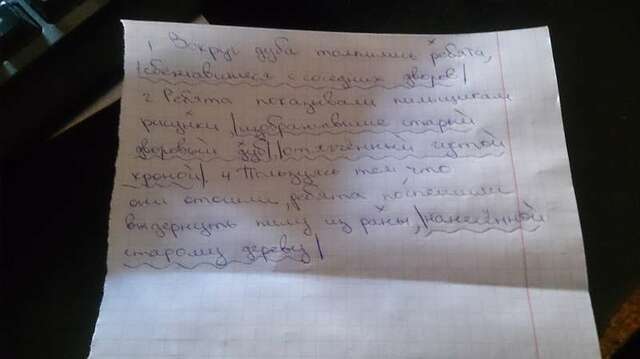 1 Вокруг дуба толпились ребята,
сбежавшиеся с соседних дворов/
2. Ребята показывали пильщикам
рисунки /изображавшие старый
дворовый дуб/, отягчённый густой
кроной/. 4 Пользуясь тем что
они отошли, ребята поспешили
выдернуть пилу из раны, /нанесённой
старому дереву/